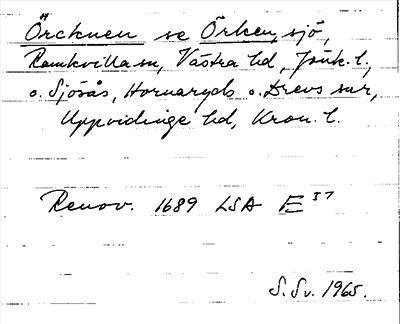 Örcknen se Örken, sjö,
Ramkvilla sn, Västra hd, Jönk. l.,
o. Sjösås, Hornaryds o. Drevs snr,
Uppvidinge hd, Kron. l.
Renov. 1689 LSA E 37
S. Sv. 1965.